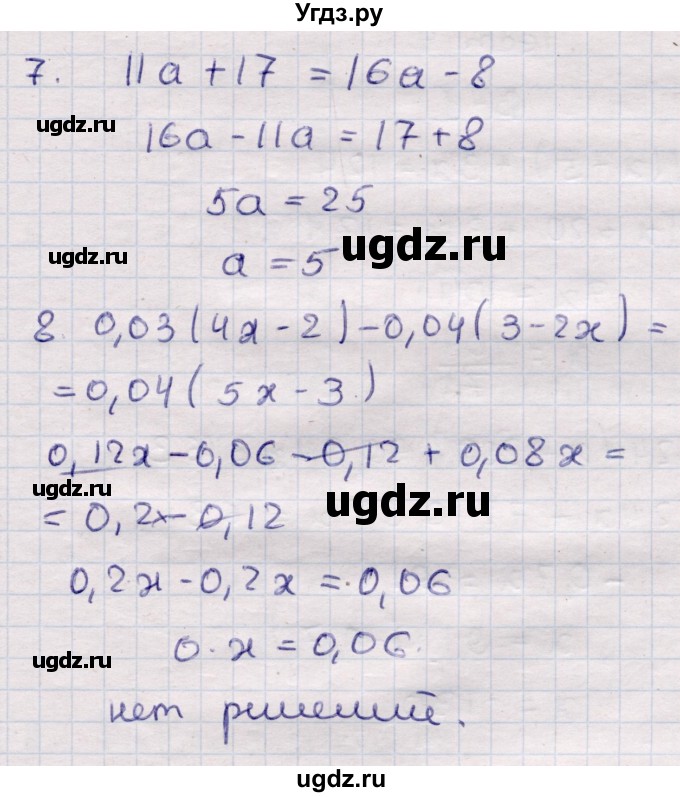 Угдз.ру
7. 11a + 17 = 16a - 8
ugdz.ru
16a - 11a = 17 + 8
5a = 25
ugdz.ru
a = 5
ugdz.ru
8. 0,03(4x - 2) - 0,04(3 - 2x) =
= 0,04(5x - 3)
0,12x - 0,06 - 0,12 + 0,08x =
ugdz.ru
ugdz.ru
= 0,2x - 0,12
0,2x - 0,2x = 0,06
0·x = 0,06.
ugdz.ru
нет решений.
ugdz.ru